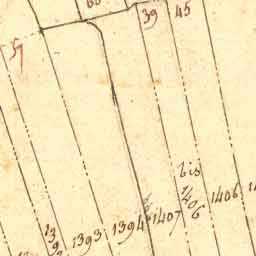 39
45
57
bis
1406
1406
1407
1394
1393